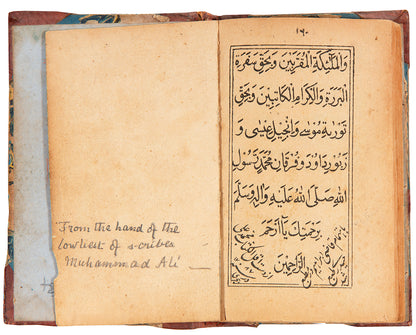 From the hand of the
lowliest of scribes
Muhammad Ali
١٤٠
والملئكة المقربين وبحق سفرة
البررة والكرام الكاتبين وبحق
تورىة موسى وانجيل عيسى و
زبور داود وفرقان محمد رسول
الله صلى الله عليه واله وسلم
برحمتك يا ارحم
الراحمين